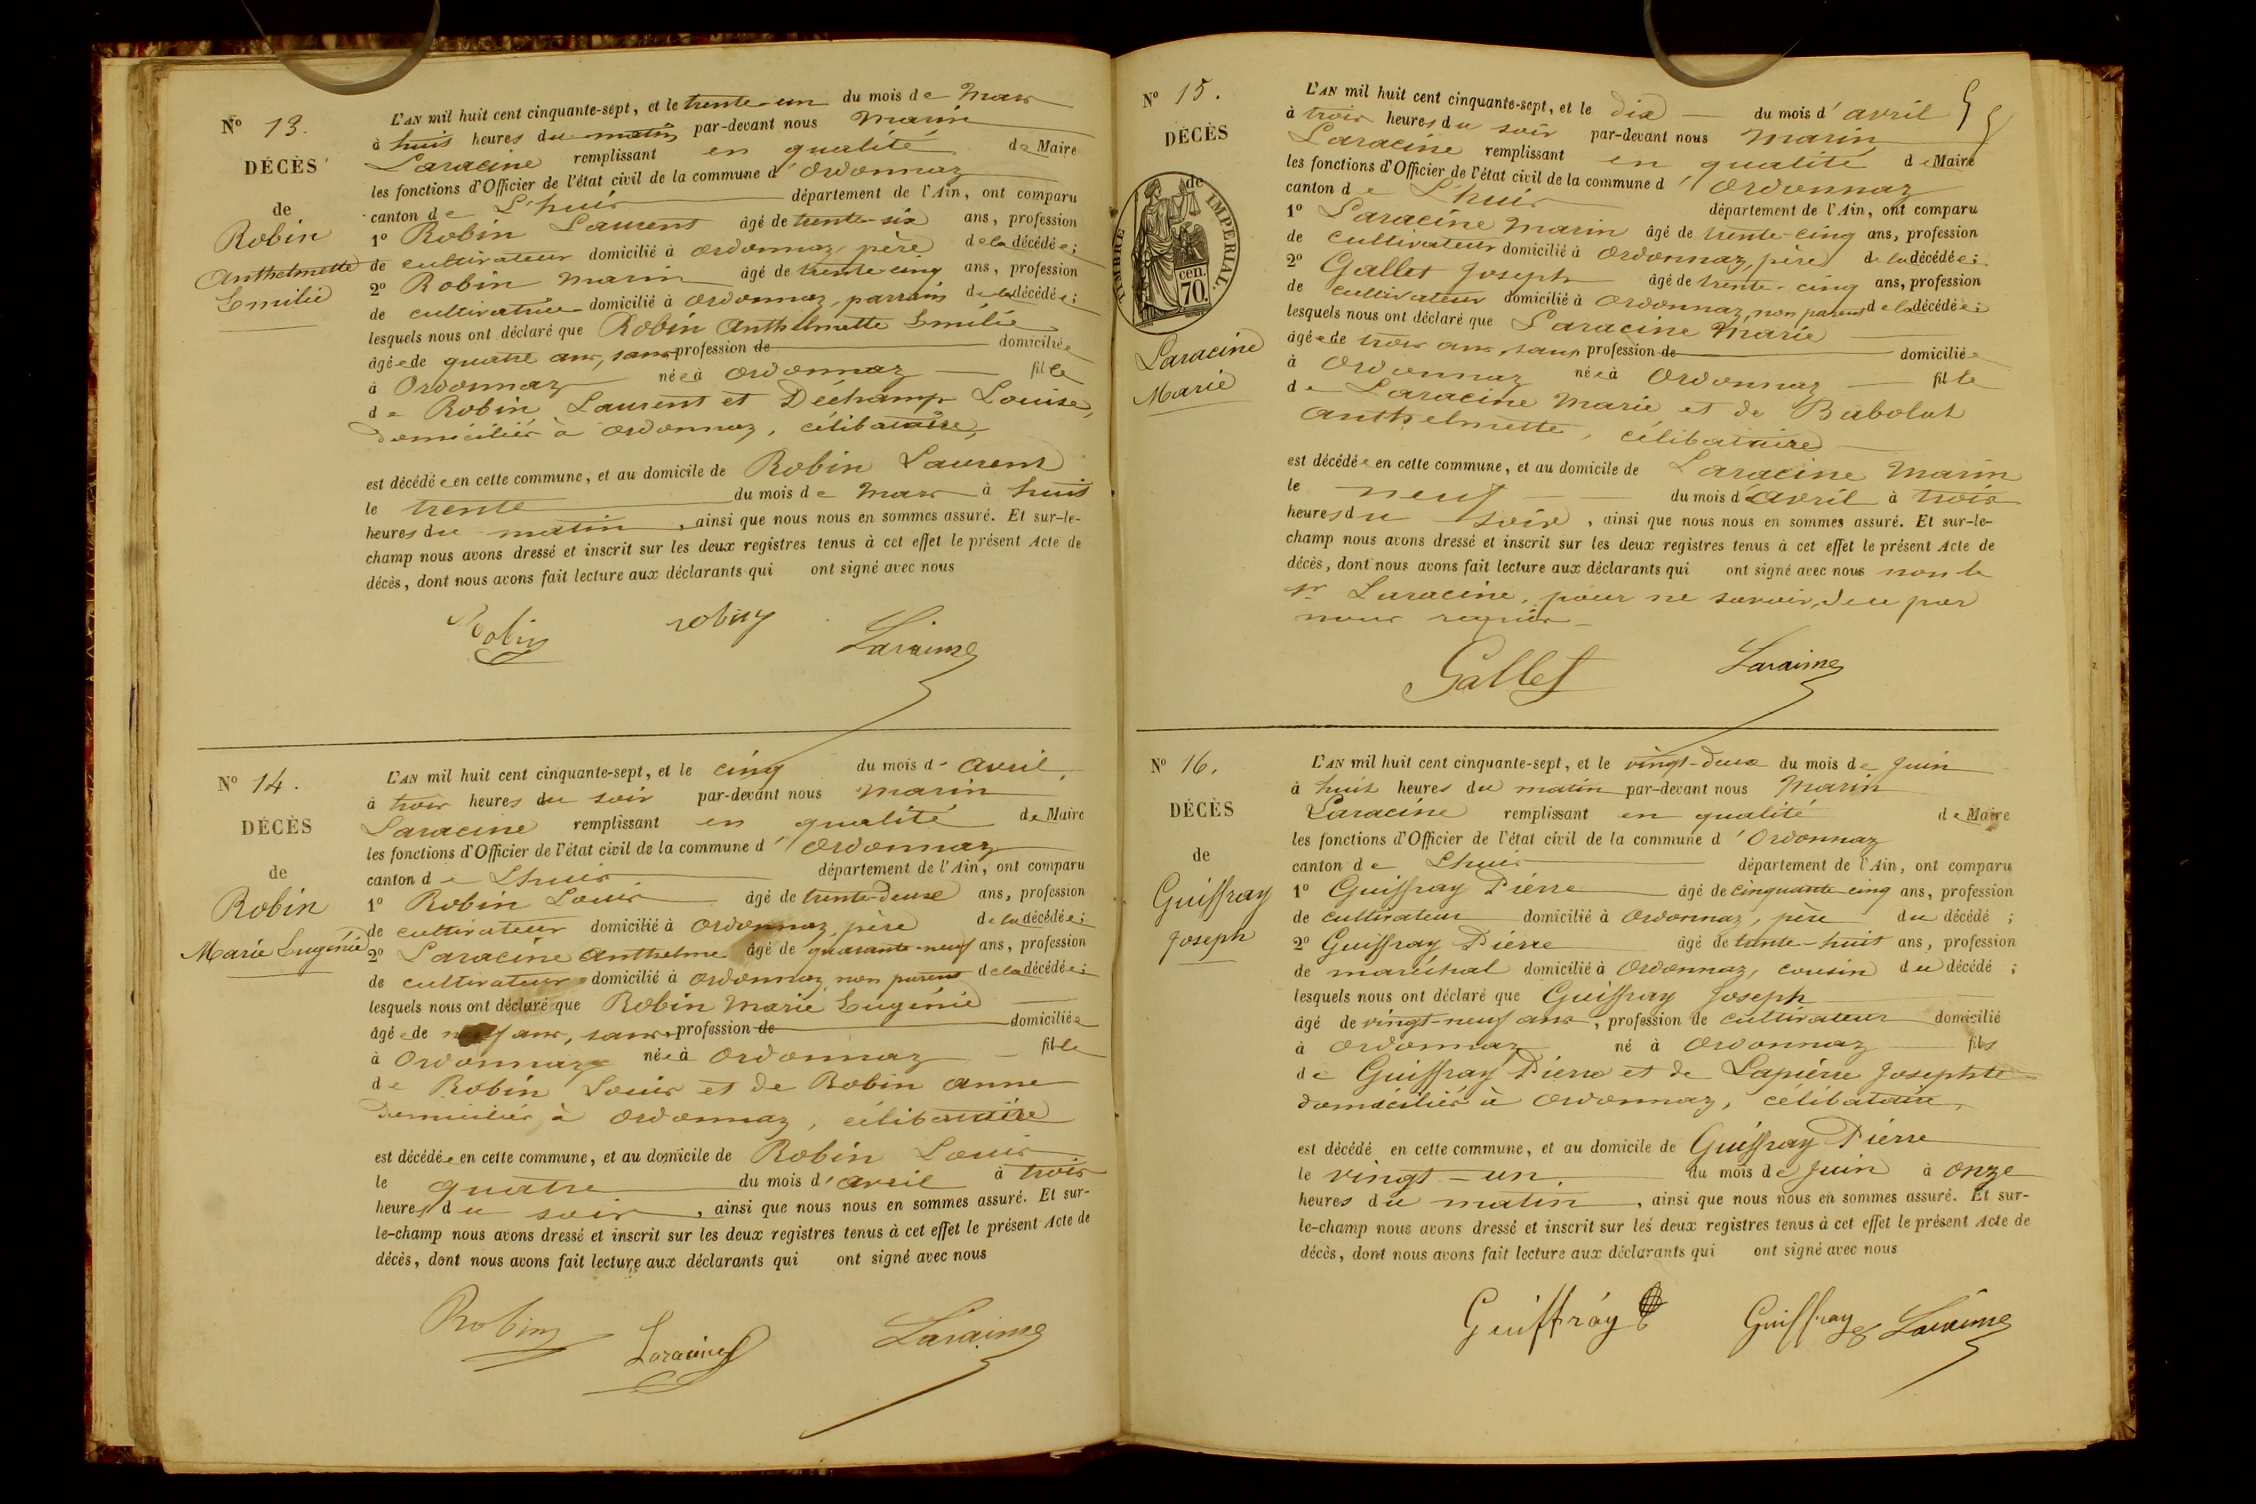 Nº 13.
DÉCÈS
de
Robin
Anthelmette
Emilie
L'AN mil huit cent cinquante-sept, et le trente-un du mois de Mars
à huit heures du matin par-devant nous Marin
Laracine remplissant en qualité de Maire
les fonctions d'Officier de l'état civil de la commune d'Ordonnaz
canton de L'huis département de l'Ain, ont comparu
1º Robin Laurent âgé de trente-six ans, profession
de cultivateur domicilié à Ordonnaz, père de la décédée;
2º Robin Marin âgé de trente cinq ans, profession
de cultivatrice domicilié à Ordonnaz, parrain de la décédée;
lesquels nous ont déclaré que Robin Anthelmette Emilie
âgée de quatre ans, sans profession de domiciliée
à Ordonnaz née à Ordonnaz fille
de Robin Laurent et Déchamp Louise,
domiciliés à Ordonnaz, célibataire,
est décédée en cette commune, et au domicile de Robin Laurent
le trente du mois de Mars à huit
heures du matin, ainsi que nous nous en sommes assuré. Et sur-le-
champ nous avons dressé et inscrit sur les deux registres tenus à cet effet le présent Acte de
décès, dont nous avons fait lecture aux déclarants qui ont signé avec nous
Robin robin Laracine
Nº 14.
DÉCÈS
de
Robin
Marie Eugénie
L'AN mil huit cent cinquante-sept, et le cinq du mois d'avril,
à trois heures du soir par-devant nous Marin
Laracine remplissant en qualité de Maire
les fonctions d'Officier de l'état civil de la commune d'Ordonnaz
canton de Lhuis département de l'Ain, ont comparu
1º Robin Louis âgé de trente-deux ans, profession
de cultivateur domicilié à Ordonnaz, père de la décédée;
2º Laracine Anthelme âgé de quarante-neuf ans, profession
de cultivateur domicilié à Ordonnaz, non parent de la décédée;
lesquels nous ont déclaré que Robin Marie Eugénie
âgée de ans, sans profession de domiciliée
à Ordonnaz née à Ordonnaz fille
de Robin Louis et de Robin Anne
domiciliés à Ordonnaz, célibataire
est décédée en cette commune, et au domicile de Robin Louis
le quatre du mois d'avril à trois
heures du soir, ainsi que nous nous en sommes assuré. Et sur-
le-champ nous avons dressé et inscrit sur les deux registres tenus à cet effet le présent Acte de
décès, dont nous avons fait lecture aux déclarants qui ont signé avec nous
Robin Laracine Laracine
Nº 15.
DÉCÈS
de
TIMBRE IMPERIAL.
70 cen.
Laracine
Marie
L'AN mil huit cent cinquante-sept, et le dix du mois d'avril
à trois heures du soir par-devant nous Marin
Laracine remplissant en qualité de Maire
les fonctions d'Officier de l'état civil de la commune d'Ordonnaz
canton de L'huis département de l'Ain, ont comparu
1º Laracine Marin âgé de trente-cinq ans, profession
de cultivateur domicilié à Ordonnaz, père de la décédée;
2º Gallet Joseph âgé de trente-cinq ans, profession
de cultivateur domicilié à Ordonnaz, non parent de la décédée;
lesquels nous ont déclaré que Laracine Marie
âgée de trois ans, sans profession de domiciliée
à Ordonnaz née à Ordonnaz fille
de Laracine Marie et de Babolat
Anthelmette, célibataire
est décédée en cette commune, et au domicile de Laracine Marin
le neuf du mois d'avril à trois
heures du soir, ainsi que nous nous en sommes assuré. Et sur-le-
champ nous avons dressé et inscrit sur les deux registres tenus à cet effet le présent Acte de
décès, dont nous avons fait lecture aux déclarants qui ont signé avec nous non le
sr Laracine, pour ne savoir, de ce par
nous requis
Gallet Laracine
Nº 16.
DÉCÈS
de
Guiffray
Joseph
L'AN mil huit cent cinquante-sept, et le vingt-deux du mois de Juin
à huit heures du matin par-devant nous Marin
Laracine remplissant en qualité de Maire
les fonctions d'Officier de l'état civil de la commune d'Ordonnaz
canton de Lhuis département de l'Ain, ont comparu
1º Guiffray Pierre âgé de cinquante cinq ans, profession
de cultivateur domicilié à Ordonnaz, père du décédé;
2º Guiffray Pierre âgé de trente-huit ans, profession
de maréchal domicilié à Ordonnaz, cousin du décédé;
lesquels nous ont déclaré que Guiffray Joseph
âgé de vingt-neuf ans, profession de cultivateur domicilié
à Ordonnaz né à Ordonnaz fils
de Guiffray Pierre et de Lapierre Josephte
domiciliés à Ordonnaz, célibataire,
est décédé en cette commune, et au domicile de Guiffray Pierre
le vingt-un du mois de Juin à onze
heures du matin, ainsi que nous nous en sommes assuré. Et sur-
le-champ nous avons dressé et inscrit sur les deux registres tenus à cet effet le présent Acte de
décès, dont nous avons fait lecture aux déclarants qui ont signé avec nous
Guiffray Guiffray Laracine